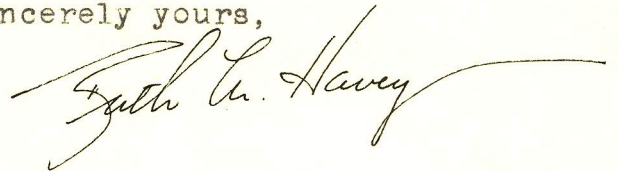 ncerely yours,
Ruth M. Havey